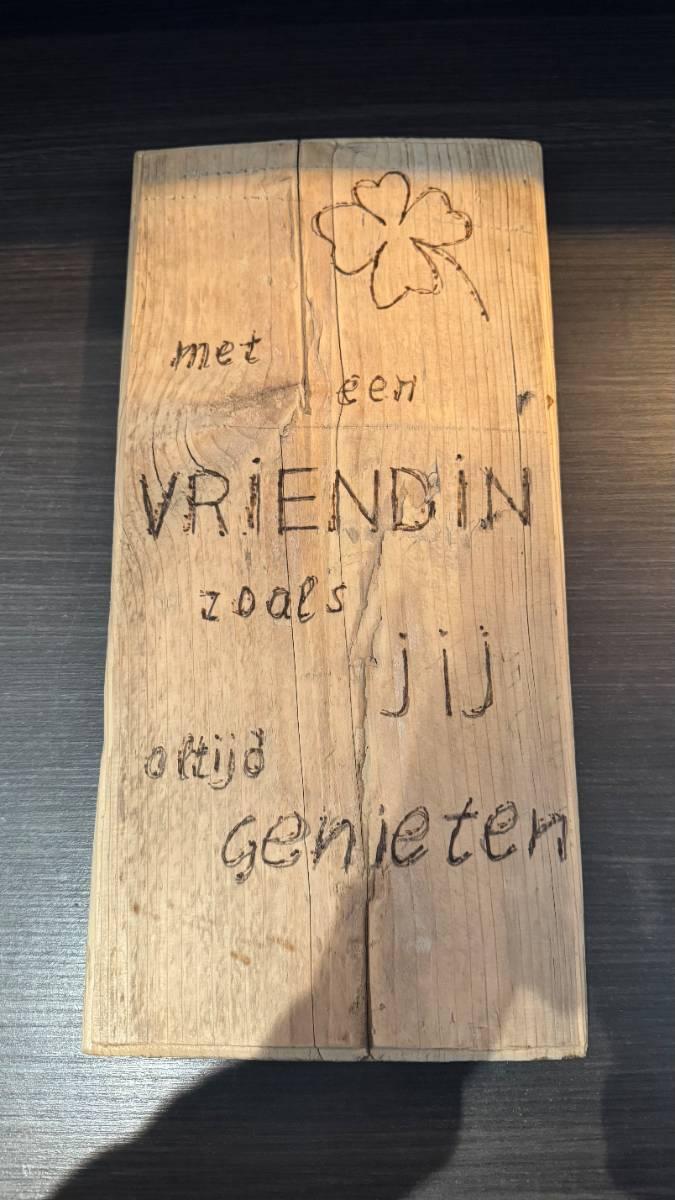 met
een
VRiENDiN
zoals
jij
altijd
Genieten